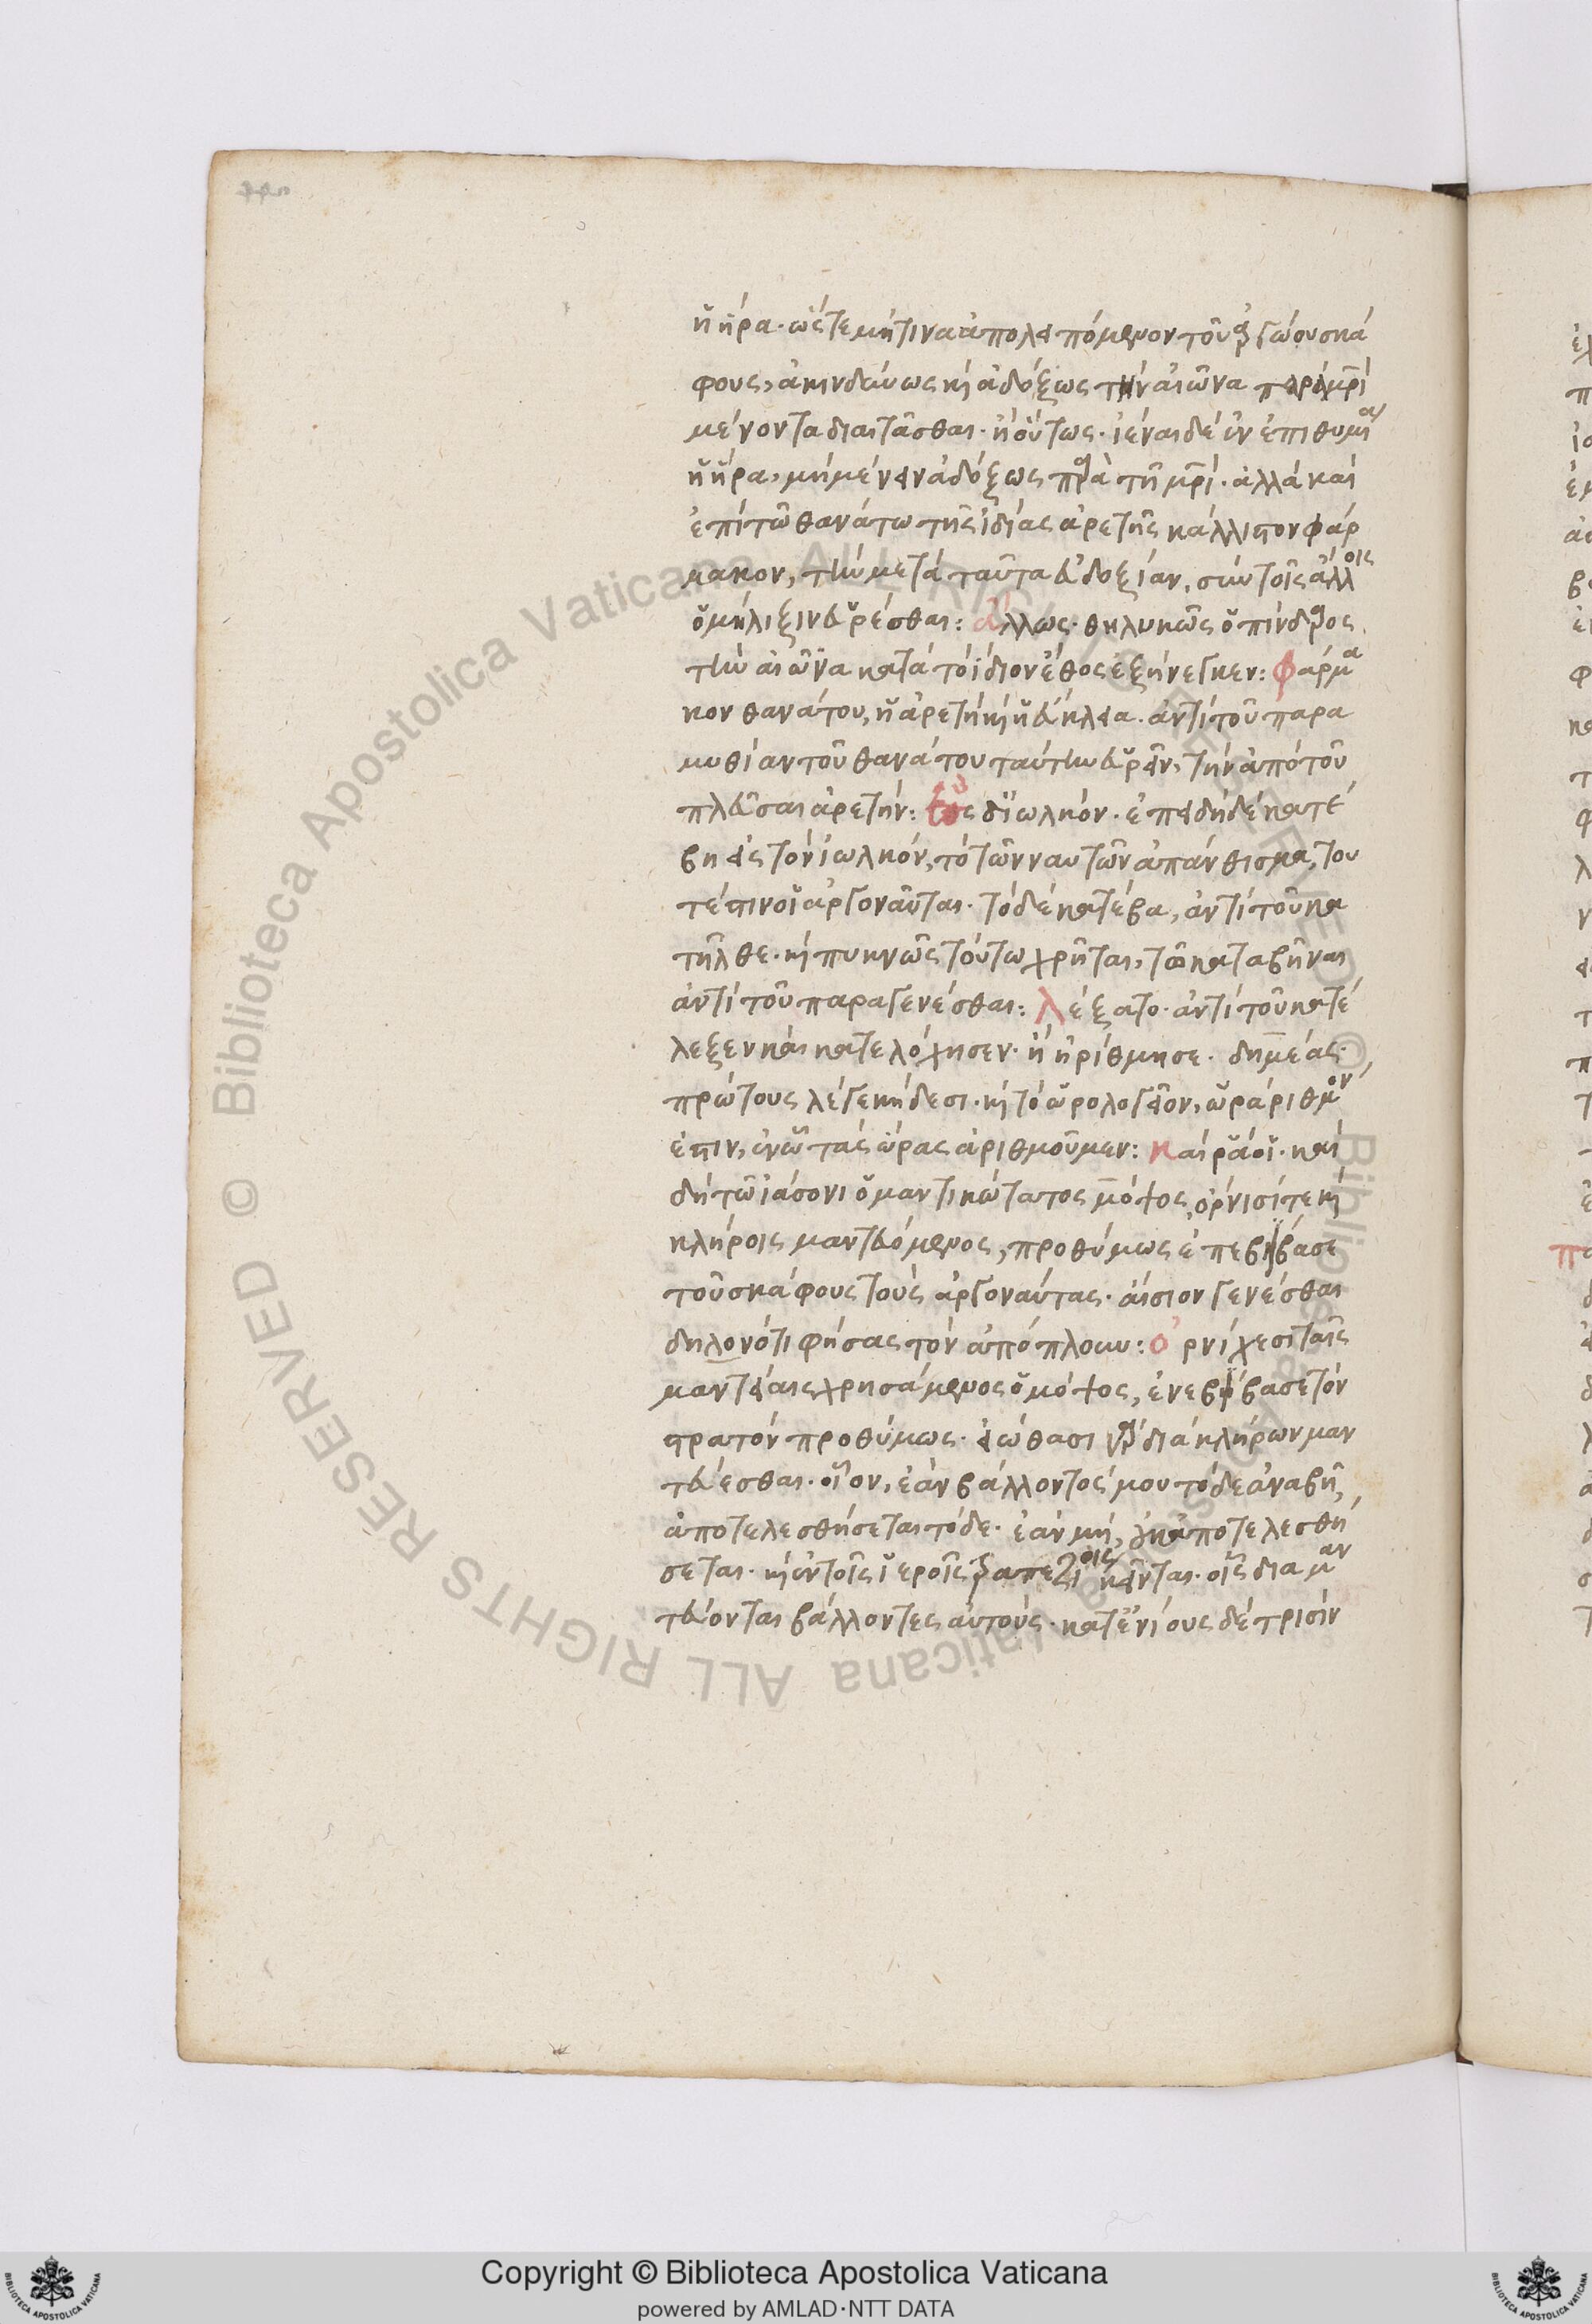 ἡ ἥρα. ὥστε μή τινα ἀπολειπόμενον τοῦ ἀργώου σκά
φους, ἀκινδύνως κỳ ἀδόξως τὴν αἰῶνα παρὰ μρὶ
μένοντα διαιτᾶσθαι. ἢ οὕτως. ἰέναι δὲ ἐν ἐπιθυμίᾳ
ἡ ἥρα, μὴ μένειν ἀδόξως παρὰ τῇ μρί. ἀλλὰ καὶ
ἐπὶ τῷ θανάτω τῆς ἰδίας ἀρετῆς κάλλιστον φάρ
μακον, τὴν μετὰ ταῦτα εὐδοξίαν, σὺν τοῖς ἄλλοις
ὁμήλιξιν εὑρέσθαι: ἄλλως. θηλυκῶς ὁ πίνδαρος
τὴν αἰῶνα κατὰ τὸ ἴδιον ἔθος ἐξήνεγκεν: φάρμα
κον θανάτου, ἡ ἀρετὴ κỳ ἡ εὔκλεια. ἀντὶ τοῦ παρα
μυθίαν τοῦ θανάτου ταύτην εὑρεῖν, τὴν ἀπὸ τοῦ
πλεῦσαι ἀρετήν: ἐς δ' ἰωλκόν. ἐπειδὴ δὲ κατέ
βη εἰς τὸν ἰωλκόν, τὸ τῶν ναυτῶν ἀπάνθισμα, του
τέστιν οἱ ἀργοναῦται. τὸ δὲ κατέβα, ἀντὶ τοῦ κα
τῆλθε. κỳ πυκνῶς τούτω χρῆται, τῶ καταβῆναι
ἀντὶ τοῦ παραγενέσθαι: λέξατο. ἀντὶ τοῦ κατέ
λεξεν καὶ κατελόχησεν. ἢ ἠρίθμησε. δημέας.
πρώτους λέγε κήδεσι. κỳ τὸ ὡρολογεῖον, ὡράριθμόν
ἐστιν, ἐν ᾧ τὰς ὥρας ἀριθμοῦμεν: καί ῥά οἱ. καὶ
δὴ τῷ ἰάσονι ὁ μαντικώτατος μόψος, ὄρνισί τε κỳ
κλήροις μαντευόμενος, προθύμως ἐπεβίβασε
τοῦ σκάφους τοὺς ἀργοναύτας. αἴσιον γενέσθαι
δηλονότι φήσας τὸν ἀπόπλουν: ὀρνίχεσι ταῖς
μαντείαις χρησάμενος ὁ μόψος, ἐνεβίβασε τὸν
στρατὸν προθύμως. εἰώθασι γὰρ διὰ κλήρων μαν
τεύεσθαι. οἷον, ἐὰν βάλλοντός μου τόδε ἀναβῇ,
ἀποτελεσθήσεται τόδε. ἐὰν μή, οὐκ ἀποτελεσθή
σεται. κỳ ἐν τοῖς ἱεροῖς τραπεζίοις κεῖνται. οἷς διαμαν
τεύονται βάλλοντες αὐτούς. κατ' ἐνίους δὲ τρισὶν
Copyright © Biblioteca Apostolica Vaticana
powered by AMLAD·NTT DATA